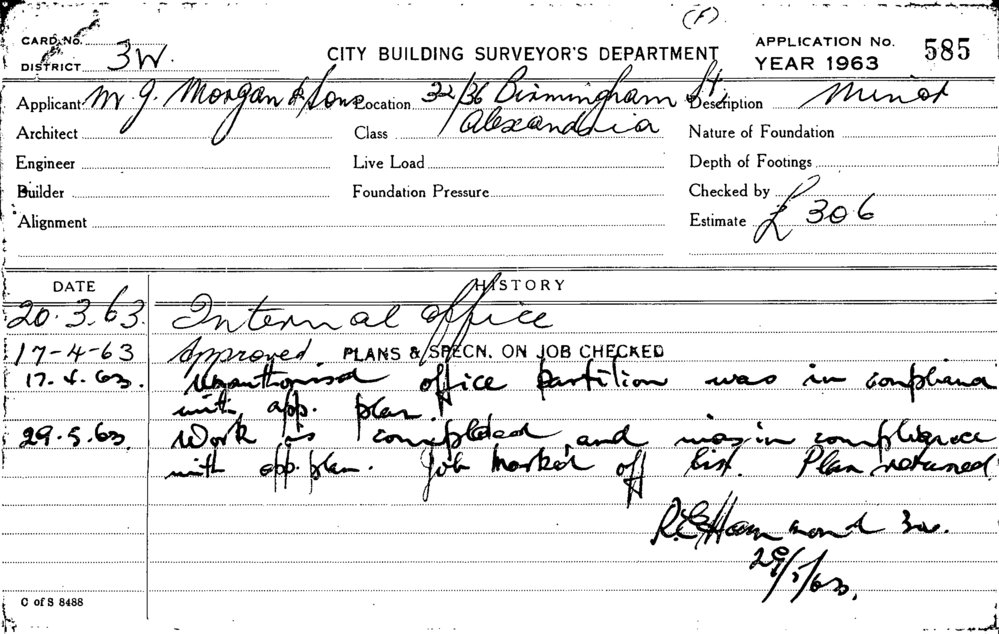 (F)
CARD No.
DISTRICT 3W.
CITY BUILDING SURVEYOR'S DEPARTMENT
APPLICATION No. 585
YEAR 1963
Applicant W J. Morgan & Sons Location 32/36 Birmingham St. Description Minor
Architect Class Alexandria Nature of Foundation
Engineer Live Load Depth of Footings
Builder Foundation Pressure Checked by
Alignment Estimate £306
DATE HISTORY
20.3.63. Internal office
17-4-63 Approved PLANS & SPECN. ON JOB CHECKED
17.4.63. Unauthorised office partition was in compliance
with app. plan.
29.5.63 Work is completed and was in compliance
with app. plan. Job marked off list. Plan returned
R.E. Hammond 3w.
29/5/63.
C of S 8488